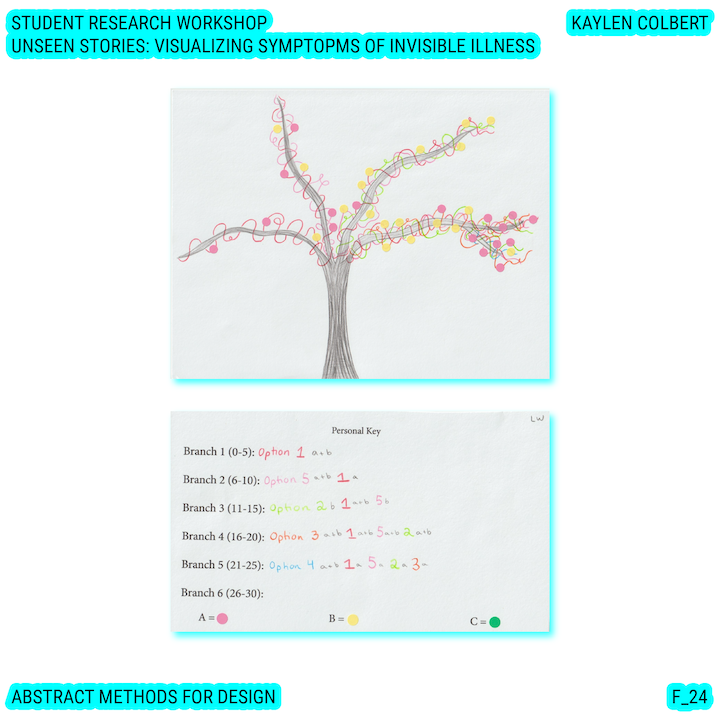 STUDENT RESEARCH WORKSHOP
KAYLEN COLBERT
UNSEEN STORIES: VISUALIZING SYMPTOPMS OF INVISIBLE ILLNESS
LW
Personal Key
Branch 1 (0-5): Option 1 a+b
Branch 2 (6-10): Option 5 a+b 1 a
Branch 3 (11-15): Option 2 b 1 a+b 5 b
Branch 4 (16-20): Option 3 a+b 1 a+b 5 a+b 2 a+b
Branch 5 (21-25): Option 4 a+b 1 a 5 2 a 3
Branch 6 (26-30):
A = B = C =
ABSTRACT METHODS FOR DESIGN
F_24